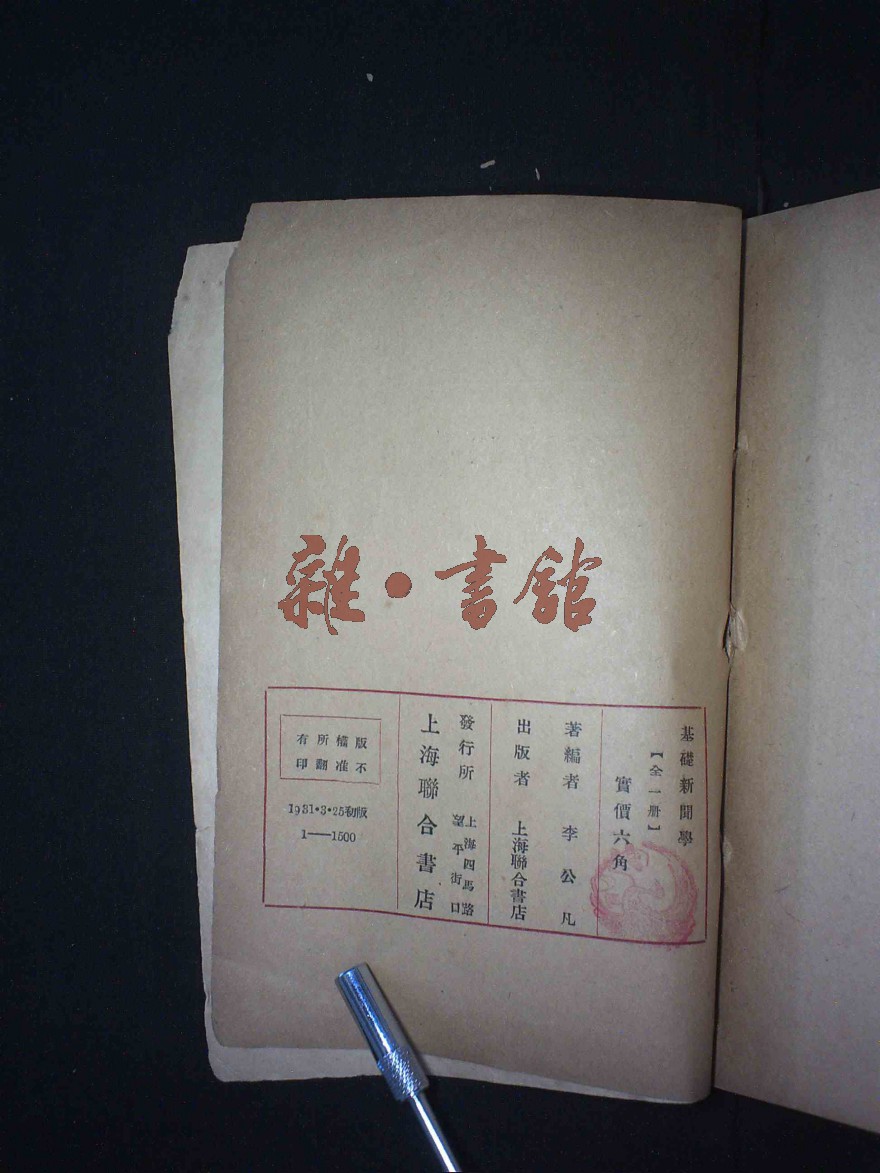 雜·書館
基礎新聞學
【全一册】
實價六角
著編者 李公凡
出版者 上海聯合書店
發行所 上海四馬路
望平街口
上海聯合書店
版權所有
不准翻印
1931·3·25初版
1——1500